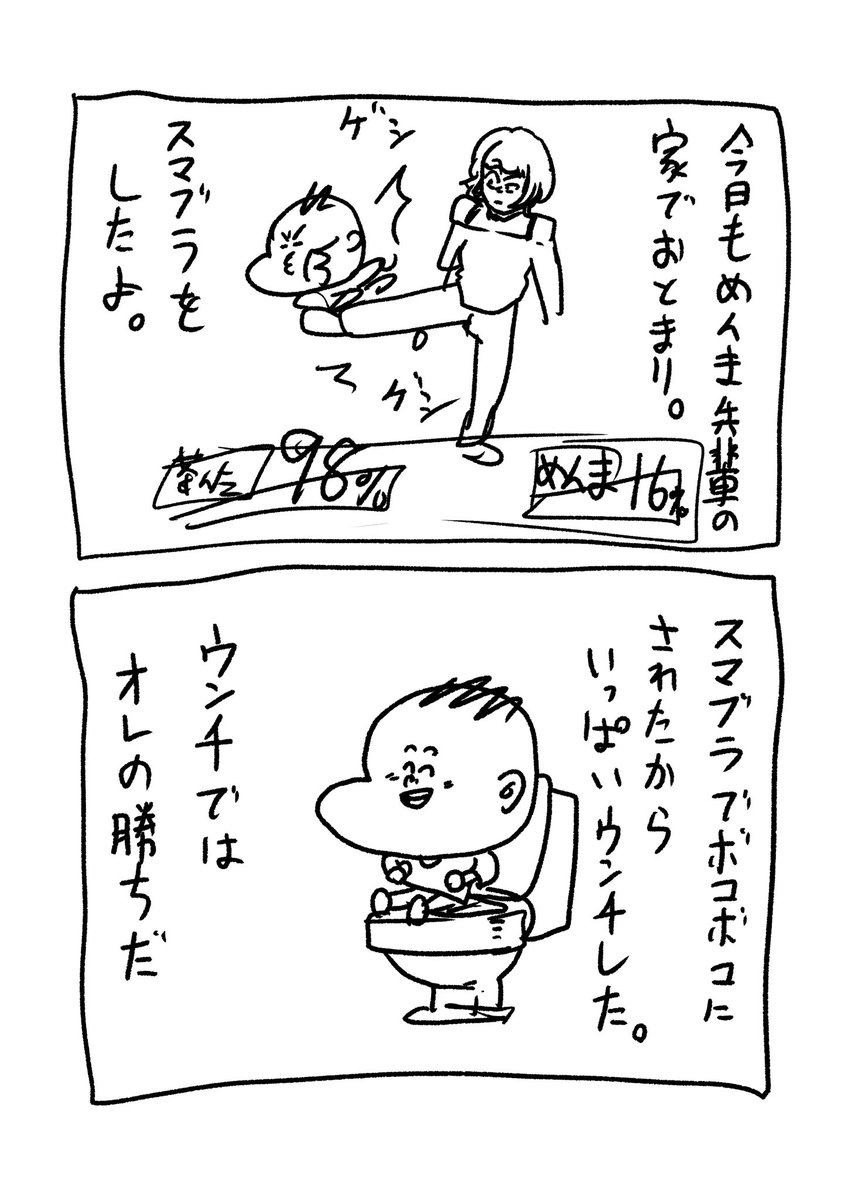 今日もめんま先輩の
家でおとまり。
ゲシ
スマブラを
したよ。
ゲシ
98%
めんま
16%
スマブラでボコボコに
されたから
いっぱいウンチした。
ウンチでは
オレの勝ちだ